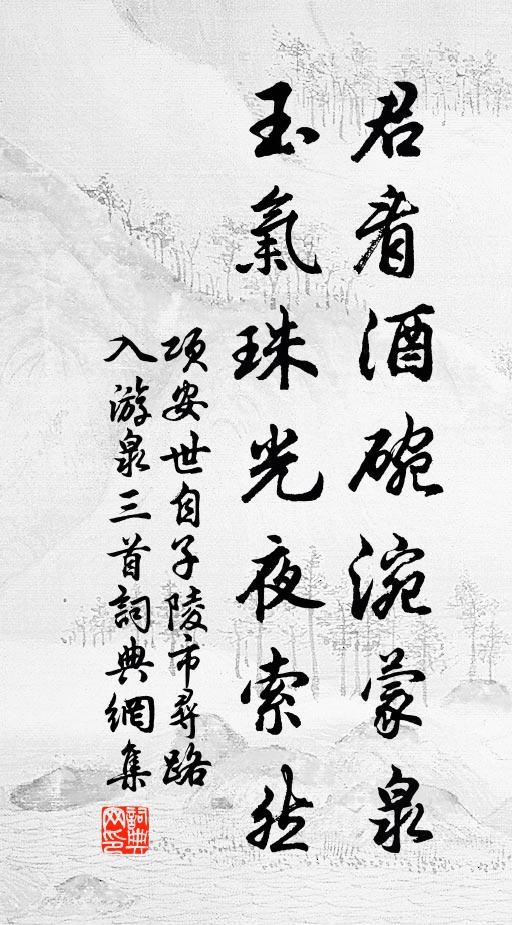 君看酒碗涴蒙泉
玉氣珠光夜索然
項安世自子陵市尋路
入游泉三首詞典網集
詞典网印